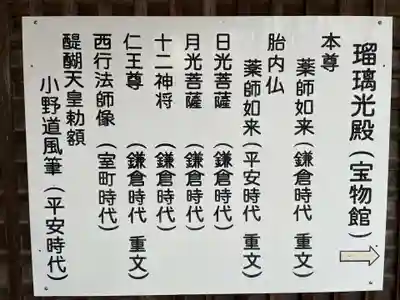 瑠璃光殿(宝物館)
本尊
薬師如来(鎌倉時代 重文)
胎内仏
薬師如来(平安時代 重文)
日光菩薩(鎌倉時代)
月光菩薩(鎌倉時代)
十二神将(鎌倉時代)
仁王尊(鎌倉時代 重文)
西行法師像(室町時代)
醍醐天皇勅額
小野道風筆(平安時代)